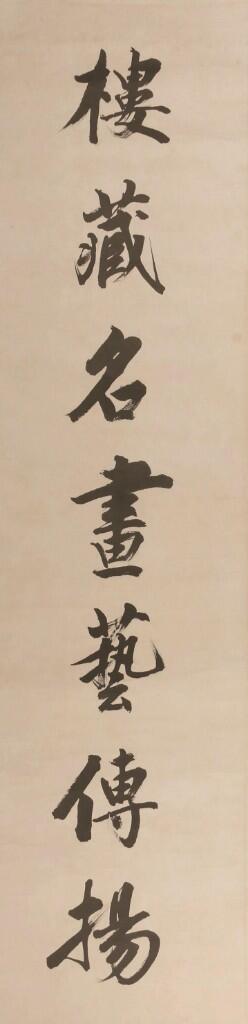 樓藏名畫藝傳揚